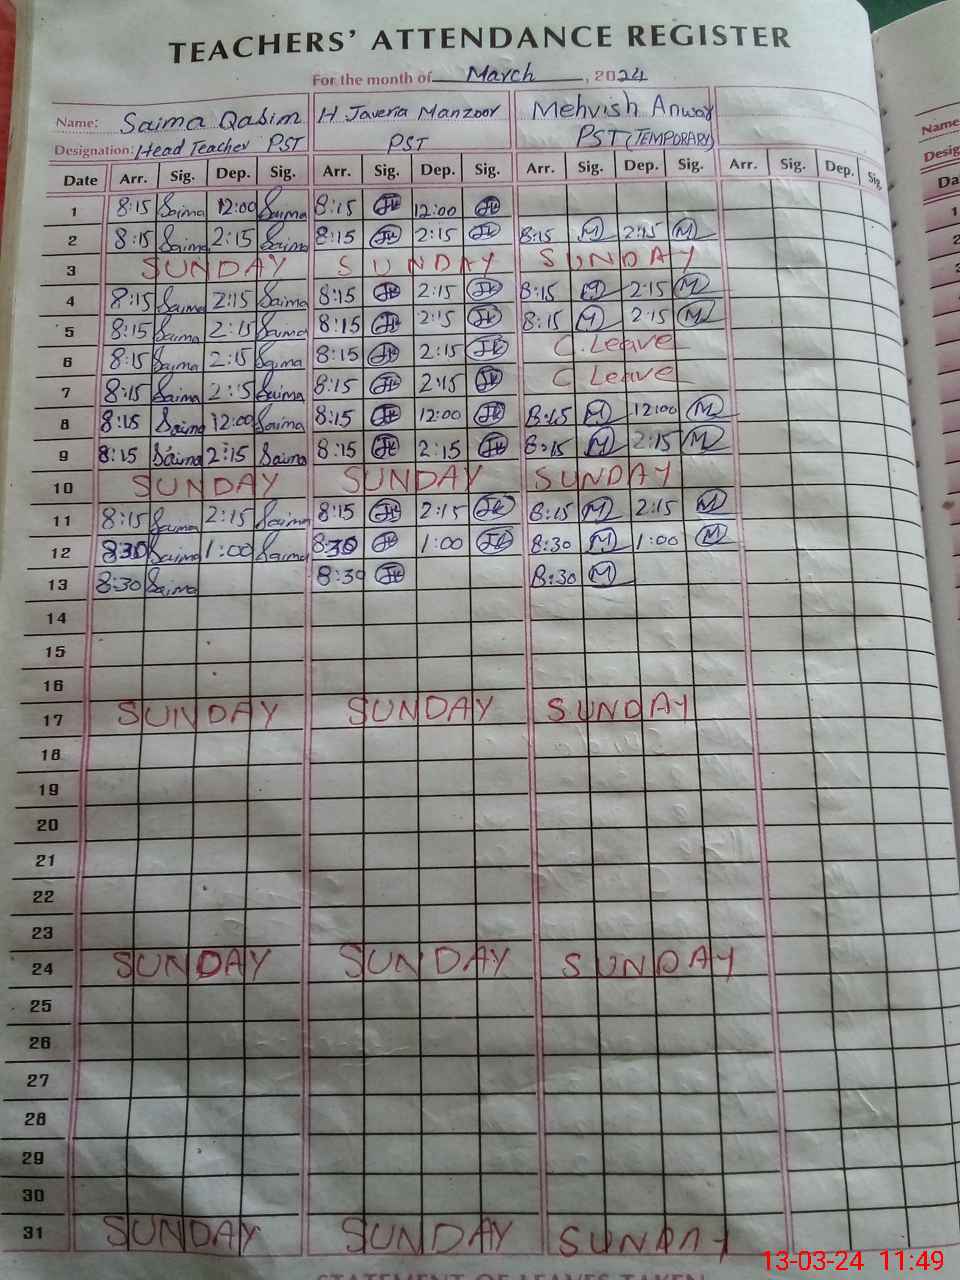 TEACHERS' ATTENDANCE REGISTER
For the month of March, 2024
Name: Saima Qasim H Javeria Manzoor Mehvish Anwar
Designation: Head Teacher PST PST PST (TEMPORARY)
Date Arr. Sig. Dep. Sig. Arr. Sig. Dep. Sig. Arr. Sig. Dep. Sig. Arr. Sig. Dep. Sig.
1 8:15 Saima 12:00 Saima 8:15 12:00
2 8:15 Saima 2:15 Saima 8:15 2:15 8:15 M 2:15 M
3 SUNDAY SUNDAY SUNDAY
4 8:15 Saima 2:15 Saima 8:15 2:15 8:15 M 2:15 M
5 8:15 Saima 2:15 Saima 8:15 2:15 8:15 M 2:15 M
6 8:15 Saima 2:15 Saima 8:15 2:15 C.Leave
7 8:15 Saima 2:15 Saima 8:15 2:15 C Leave
8 8:15 Saima 12:00 Saima 8:15 12:00 8:15 M 12:00 M
9 8:15 Saima 2:15 Saima 8:15 2:15 8:15 M 2:15 M
10 SUNDAY SUNDAY SUNDAY
11 8:15 Saima 2:15 Saima 8:15 2:15 8:15 M 2:15 M
12 8:30 Saima 1:00 Saima 8:30 1:00 8:30 M 1:00 M
13 8:30 Saima 8:30 8:30 M
14
15
16
17 SUNDAY SUNDAY SUNDAY
18
19
20
21
22
23
24 SUNDAY SUNDAY SUNDAY
25
26
27
28
29
30
31 SUNDAY SUNDAY SUNDAY
STATEMENT OF LEAVES TAKEN
13-03-24 11:49
Name
Desig
Da
1
2
3